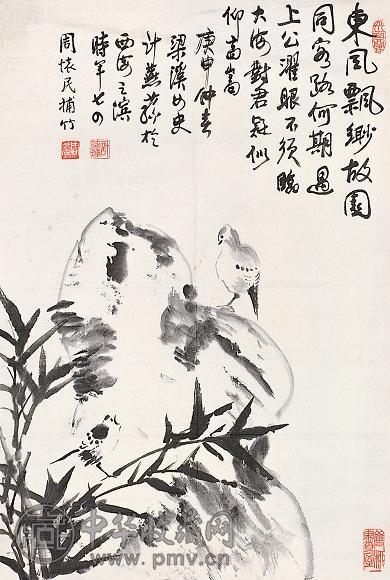 東風飄緲故園
同客路何期遇
上公濯眼不須臨
大海對君似
仰高嵩
庚申仲春
梁溪女史
計燕蓀於
西海之濱
時年七四
周懷民補竹
中华收藏网
www.pmv.cn